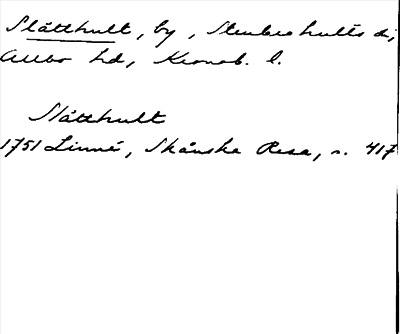 Slätthult, by, Stenbrohults sn,
Allbo hd, Kronob. l.
Slätthult
1751 Linné, Skånska Resa, s. 417